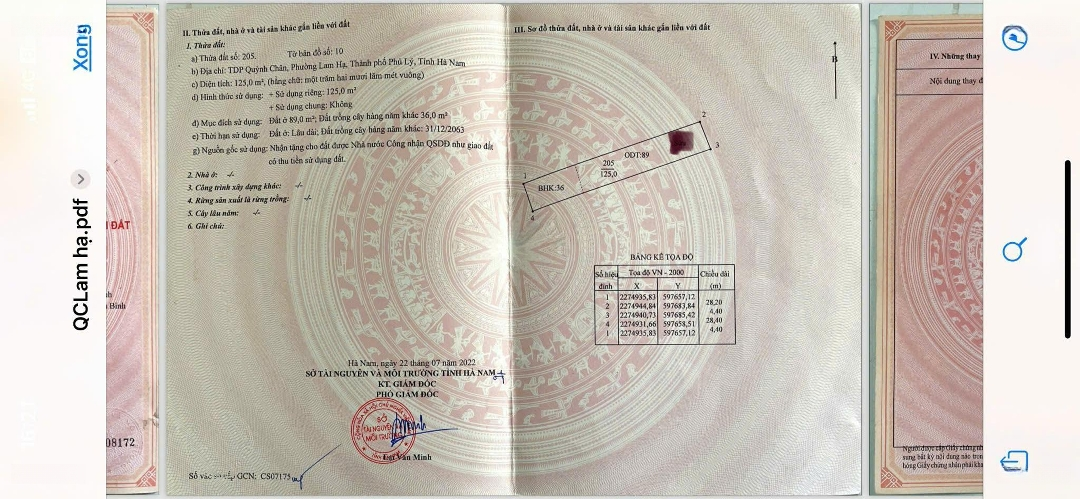 Xong
QCLam hạ.pdf
ĐẤT
Bình
08172
II. Thửa đất, nhà ở và tài sản khác gắn liền với đất
1. Thửa đất:
a) Thửa đất số: 205. Tờ bản đồ số: 10
b) Địa chỉ: TDP Quỳnh Chân, Phường Lam Hạ, Thành phố Phủ Lý, Tỉnh Hà Nam
c) Diện tích: 125,0 m², (bằng chữ: một trăm hai mươi lăm mét vuông)
d) Hình thức sử dụng: + Sử dụng riêng: 125,0 m²
+ Sử dụng chung: Không
đ) Mục đích sử dụng: Đất ở 89,0 m²; Đất trồng cây hàng năm khác 36,0 m²
e) Thời hạn sử dụng: Đất ở: Lâu dài; Đất trồng cây hàng năm khác: 31/12/2063
g) Nguồn gốc sử dụng: Nhận tặng cho đất được Nhà nước Công nhận QSDĐ như giao đất
có thu tiền sử dụng đất.
2. Nhà ở: -/-
3. Công trình xây dựng khác: -/-
4. Rừng sản xuất là rừng trồng: -/-
5. Cây lâu năm: -/-
6. Ghi chú:
Hà Nam, ngày 22 tháng 07 năm 2022
SỞ TÀI NGUYÊN VÀ MÔI TRƯỜNG TỈNH HÀ NAM
KT. GIÁM ĐỐC
PHÓ GIÁM ĐỐC
SỞ
TÀI NGUYÊN
MÔI TRƯỜNG
Văn Minh
Số vào GCN: CS07175
III. Sơ đồ thửa đất, nhà ở và tài sản khác gắn liền với đất
B
2
ODT:89
3
205
125,0
1
BHK:36
4
BẢNG KÊ TỌA ĐỘ
Số hiệu đỉnh Tọa độ VN - 2000 Chiều dài (m)
X Y
1 2274935,83 597657,12
28,20
2 2274944,84 597683,84
4,40
3 2274940,73 597685,42
28,40
4 2274931,66 597658,51
4,40
1 2274935,83 597657,12
IV. Những thay
Nội dung thay đ
Người được cấp Giấy chứng nh
sung bất kỳ nội dung nào tron
hỏng Giấy chứng nhận phải kha